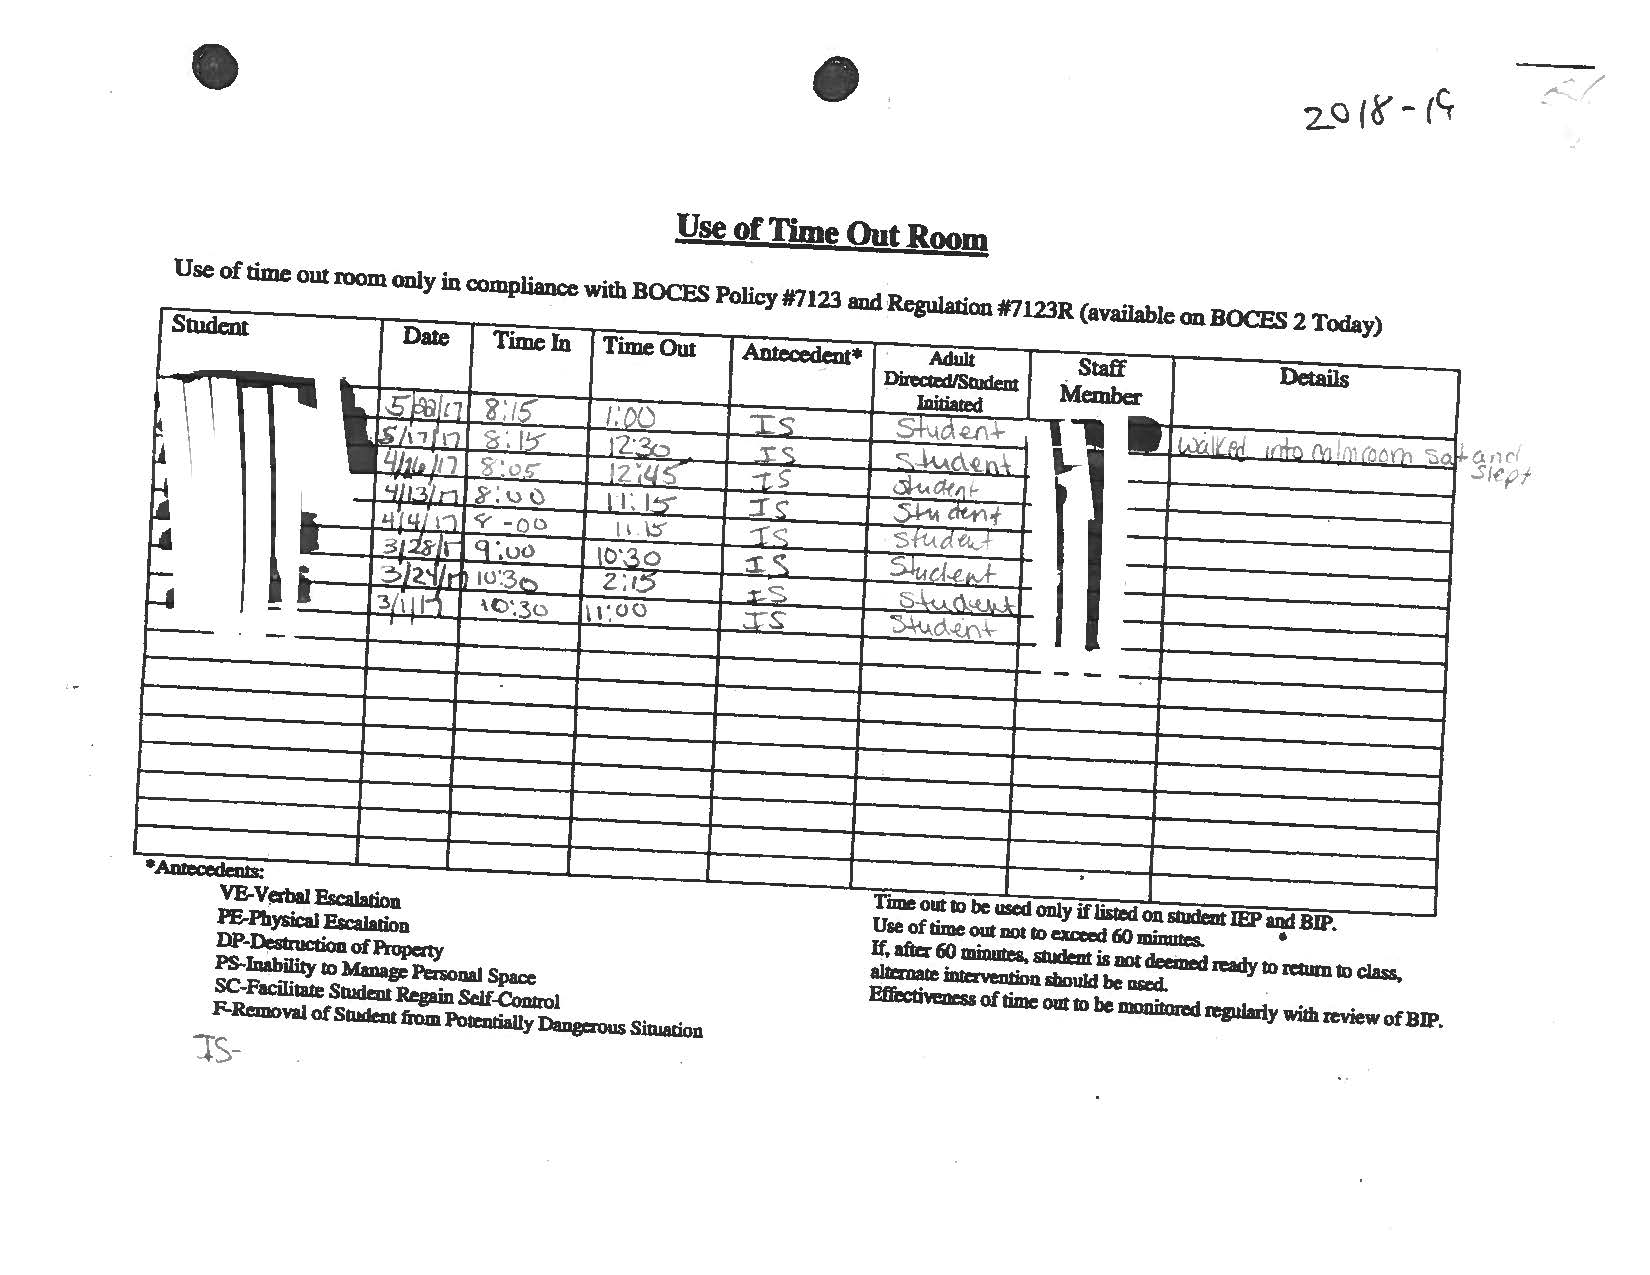 2018-19
Use of Time Out Room
Use of time out room only in compliance with BOCES Policy #7123 and Regulation #7123R (available on BOCES 2 Today)
Student Date Time In Time Out Antecedent* Adult Directed/Student Initiated Staff Member Details
5/ /17 8:15 1:00 IS Student
5/17/17 8:15 12:30 IS Student walked into room sat and slept
4/ /17 8:05 12:45 IS Student
4/13/17 8:00 11:15 IS Student
4/4/17 8-00 11:15 IS Student
3/28/17 9:00 10:30 IS Student
3/24/17 10:30 2:15 IS Student
3/1/17 10:30 11:00 IS Student
*Antecedents:
VE-Verbal Escalation
PE-Physical Escalation
DP-Destruction of Property
PS-Inability to Manage Personal Space
SC-Facilitate Student Regain Self-Control
F-Removal of Student from Potentially Dangerous Situation
IS-
Time out to be used only if listed on student IEP and BIP.
Use of time out not to exceed 60 minutes.
If, after 60 minutes, student is not deemed ready to return to class,
alternate intervention should be used.
Effectiveness of time out to be monitored regularly with review of BIP.